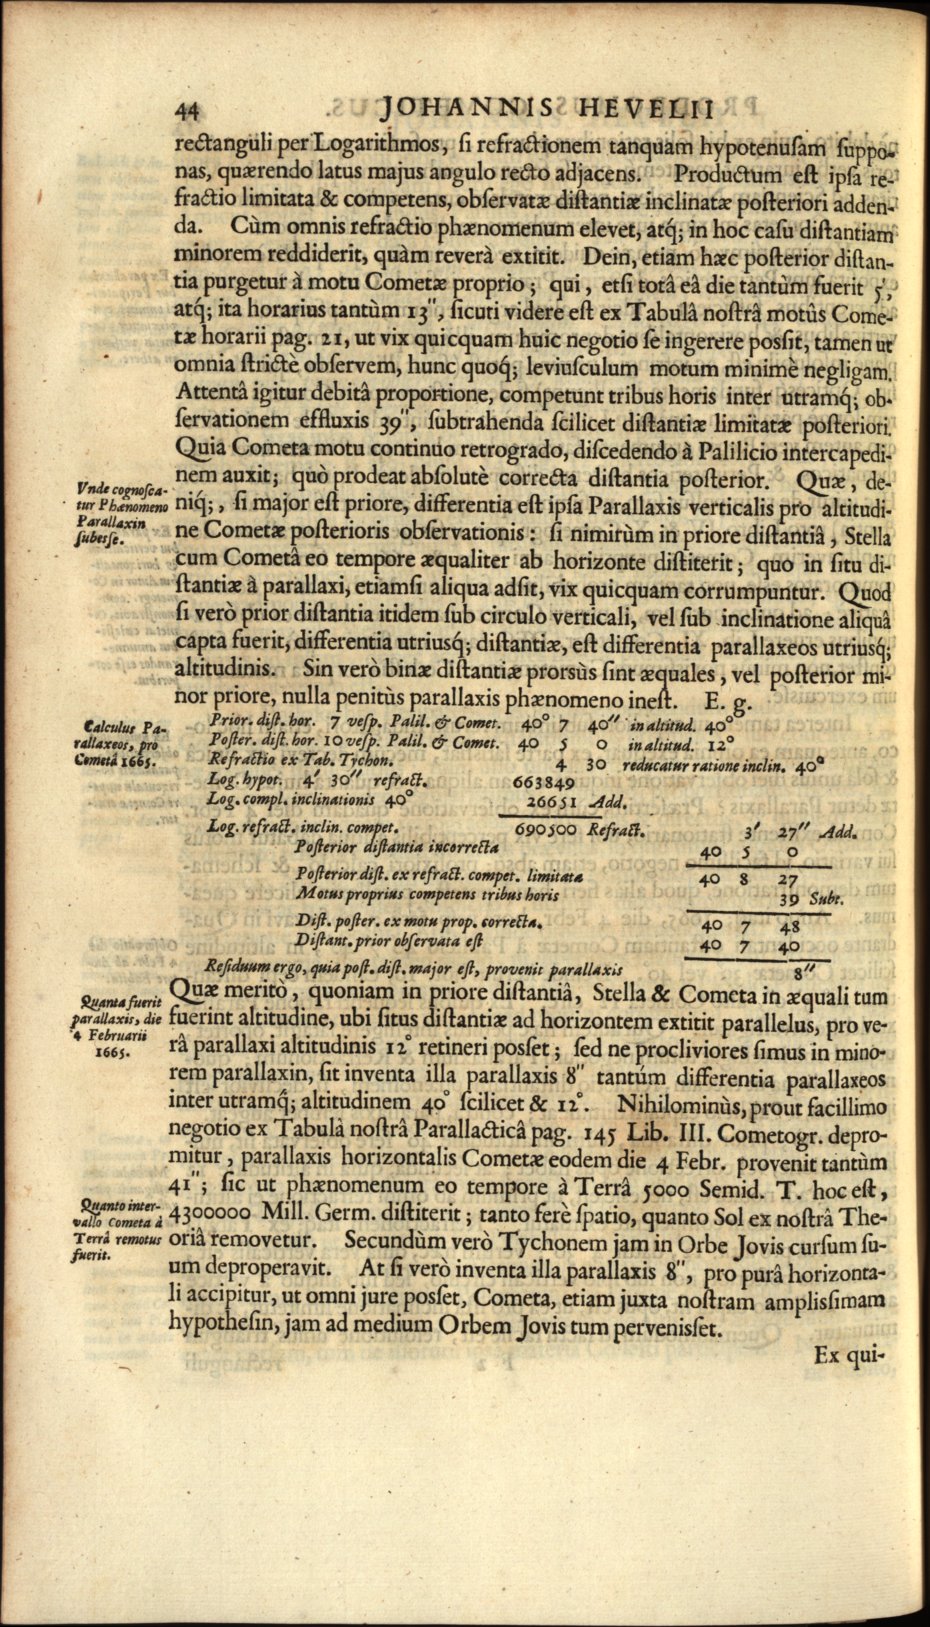 44 JOHANNIS HEVELII
rectanguli per Logarithmos, ſi refractionem tanquam hypotenuſam ſuppo-
nas, quærendo latus majus angulo recto adjacens. Productum eſt ipſa re-
fractio limitata & competens, obſervatæ diſtantiæ inclinatæ poſteriori adden-
da. Cùm omnis refractio phænomenum elevet, atq́; in hoc caſu diſtantiam
minorem reddiderit, quàm reverà extitit. Dein, etiam hæc poſterior diſtan-
tia purgetur à motu Cometæ proprio; qui, etſi totâ eâ die tantùm fuerit 5′,
atq́; ita horarius tantùm 13″, ſicuti videre eſt ex Tabulâ noſtrâ motûs Come-
tæ horarii pag. 21, ut vix quicquam huic negotio ſe ingerere poſſit, tamen ut
omnia ſtrictè obſervem, hunc quoq́; leviuſculum motum minimè negligam.
Attentâ igitur debitâ proportione, competunt tribus horis inter utramq́; ob-
ſervationem effluxis 39″, ſubtrahenda ſcilicet diſtantiæ limitatæ poſteriori.
Quia Cometa motu continuo retrogrado, diſcedendo à Palilicio intercapedi-
nem auxit; quò prodeat abſolutè correcta diſtantia poſterior. Quæ, de-
niq́;, ſi major eſt priore, differentia eſt ipſa Parallaxis verticalis pro altitudi-
ne Cometæ poſterioris obſervationis: ſi nimirùm in priore diſtantiâ, Stella
cum Cometâ eo tempore æqualiter ab horizonte diſtiterit; quo in ſitu di-
ſtantiæ à parallaxi, etiamſi aliqua adſit, vix quicquam corrumpuntur. Quod
ſi verò prior diſtantia itidem ſub circulo verticali, vel ſub inclinatione aliquâ
capta fuerit, differentia utriusq́; diſtantiæ, eſt differentia parallaxeos utriusq́;
altitudinis. Sin verò binæ diſtantiæ prorsùs ſint æquales, vel poſterior mi-
nor priore, nulla penitùs parallaxis phænomeno ineſt. E. g.
Vnde cognoſca-
tur Phænomeno
Parallaxin
ſubeſſe.
Prior. diſt. hor. 7 veſp. Palil. & Comet. 40° 7 40″ in altitud. 40°
Poſter. diſt. hor. 10 veſp. Palil. & Comet. 40 5 0 in altitud. 12°
Refractio ex Tab. Tychon. 4 30 reducatur ratione inclin. 40°
Log. hypot. 4′ 30″ refract. 663849
Log. compl. inclinationis 40° 26651 Add.
Log. refract. inclin. compet. 690500 Refract. 3′ 27″ Add.
Poſterior diſtantia incorrecta 40 5 0
Poſterior diſt. ex refract. compet. limitata 40 8 27
Motus proprius competens tribus horis 39 Subt.
Diſt. poſter. ex motu prop. correcta. 40 7 48
Diſtant. prior obſervata eſt 40 7 40
Reſiduum ergo, quia poſt. diſt. major eſt, provenit parallaxis 8″
Calculus Pa-
rallaxeos, pro
Cometâ 1665.
Quæ meritò, quoniam in priore diſtantiâ, Stella & Cometa in æquali tum
fuerint altitudine, ubi ſitus diſtantiæ ad horizontem extitit parallelus, pro ve-
râ parallaxi altitudinis 12° retineri poſſet; ſed ne procliviores ſimus in mino-
rem parallaxin, ſit inventa illa parallaxis 8″ tantúm differentia parallaxeos
inter utramq́; altitudinem 40° ſcilicet & 12°. Nihilominùs, prout facillimo
negotio ex Tabulâ noſtrâ Parallacticâ pag. 145 Lib. III. Cometogr. depro-
mitur, parallaxis horizontalis Cometæ eodem die 4 Febr. provenit tantùm
41″; ſic ut phænomenum eo tempore à Terrâ 5000 Semid. T. hoc eſt,
4300000 Mill. Germ. diſtiterit; tanto ferè ſpatio, quanto Sol ex noſtrâ The-
oriâ removetur. Secundùm verò Tychonem jam in Orbe Jovis curſum ſu-
um deproperavit. At ſi verò inventa illa parallaxis 8″, pro purâ horizonta-
li accipitur, ut omni jure poſſet, Cometa, etiam juxta noſtram ampliſſimam
hypotheſin, jam ad medium Orbem Jovis tum perveniſſet.
Quanta fuerit
parallaxis, die
4 Februarii
1665.
Quanto inter-
vallo Cometa à
Terrâ remotus
fuerit.
Ex qui-